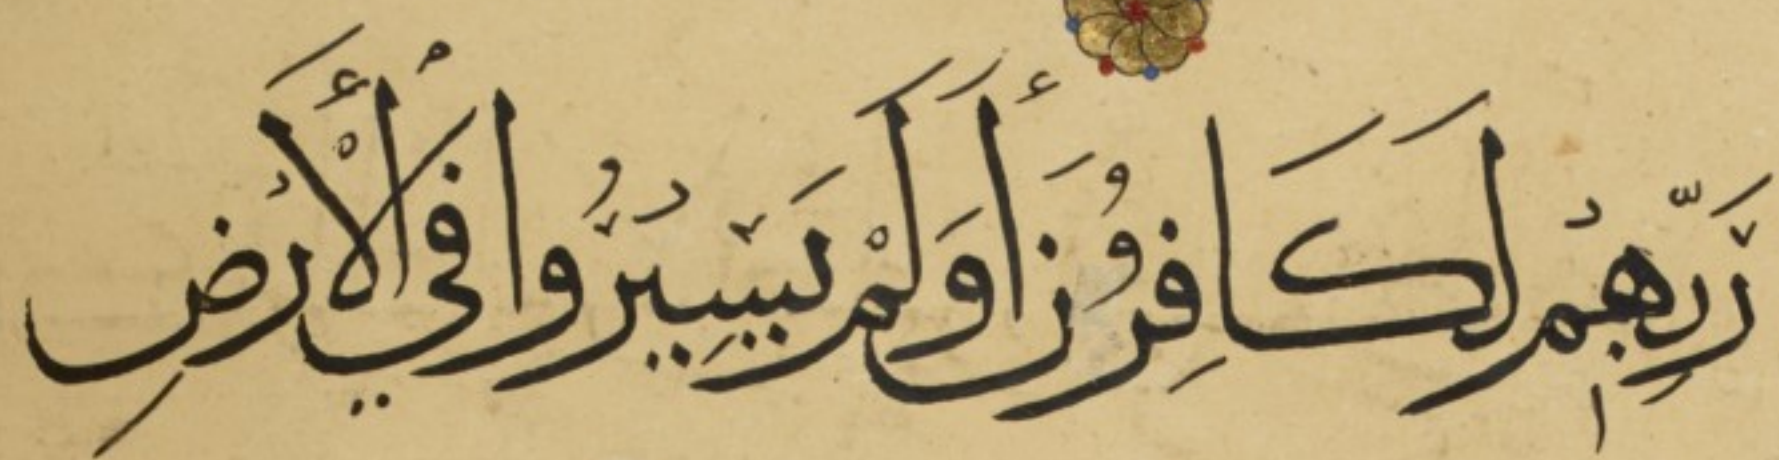 رَبِّهِمْ لَكَافِرُونَ أَوَلَمْ يَسِيرُوا فِي الْأَرْضِ